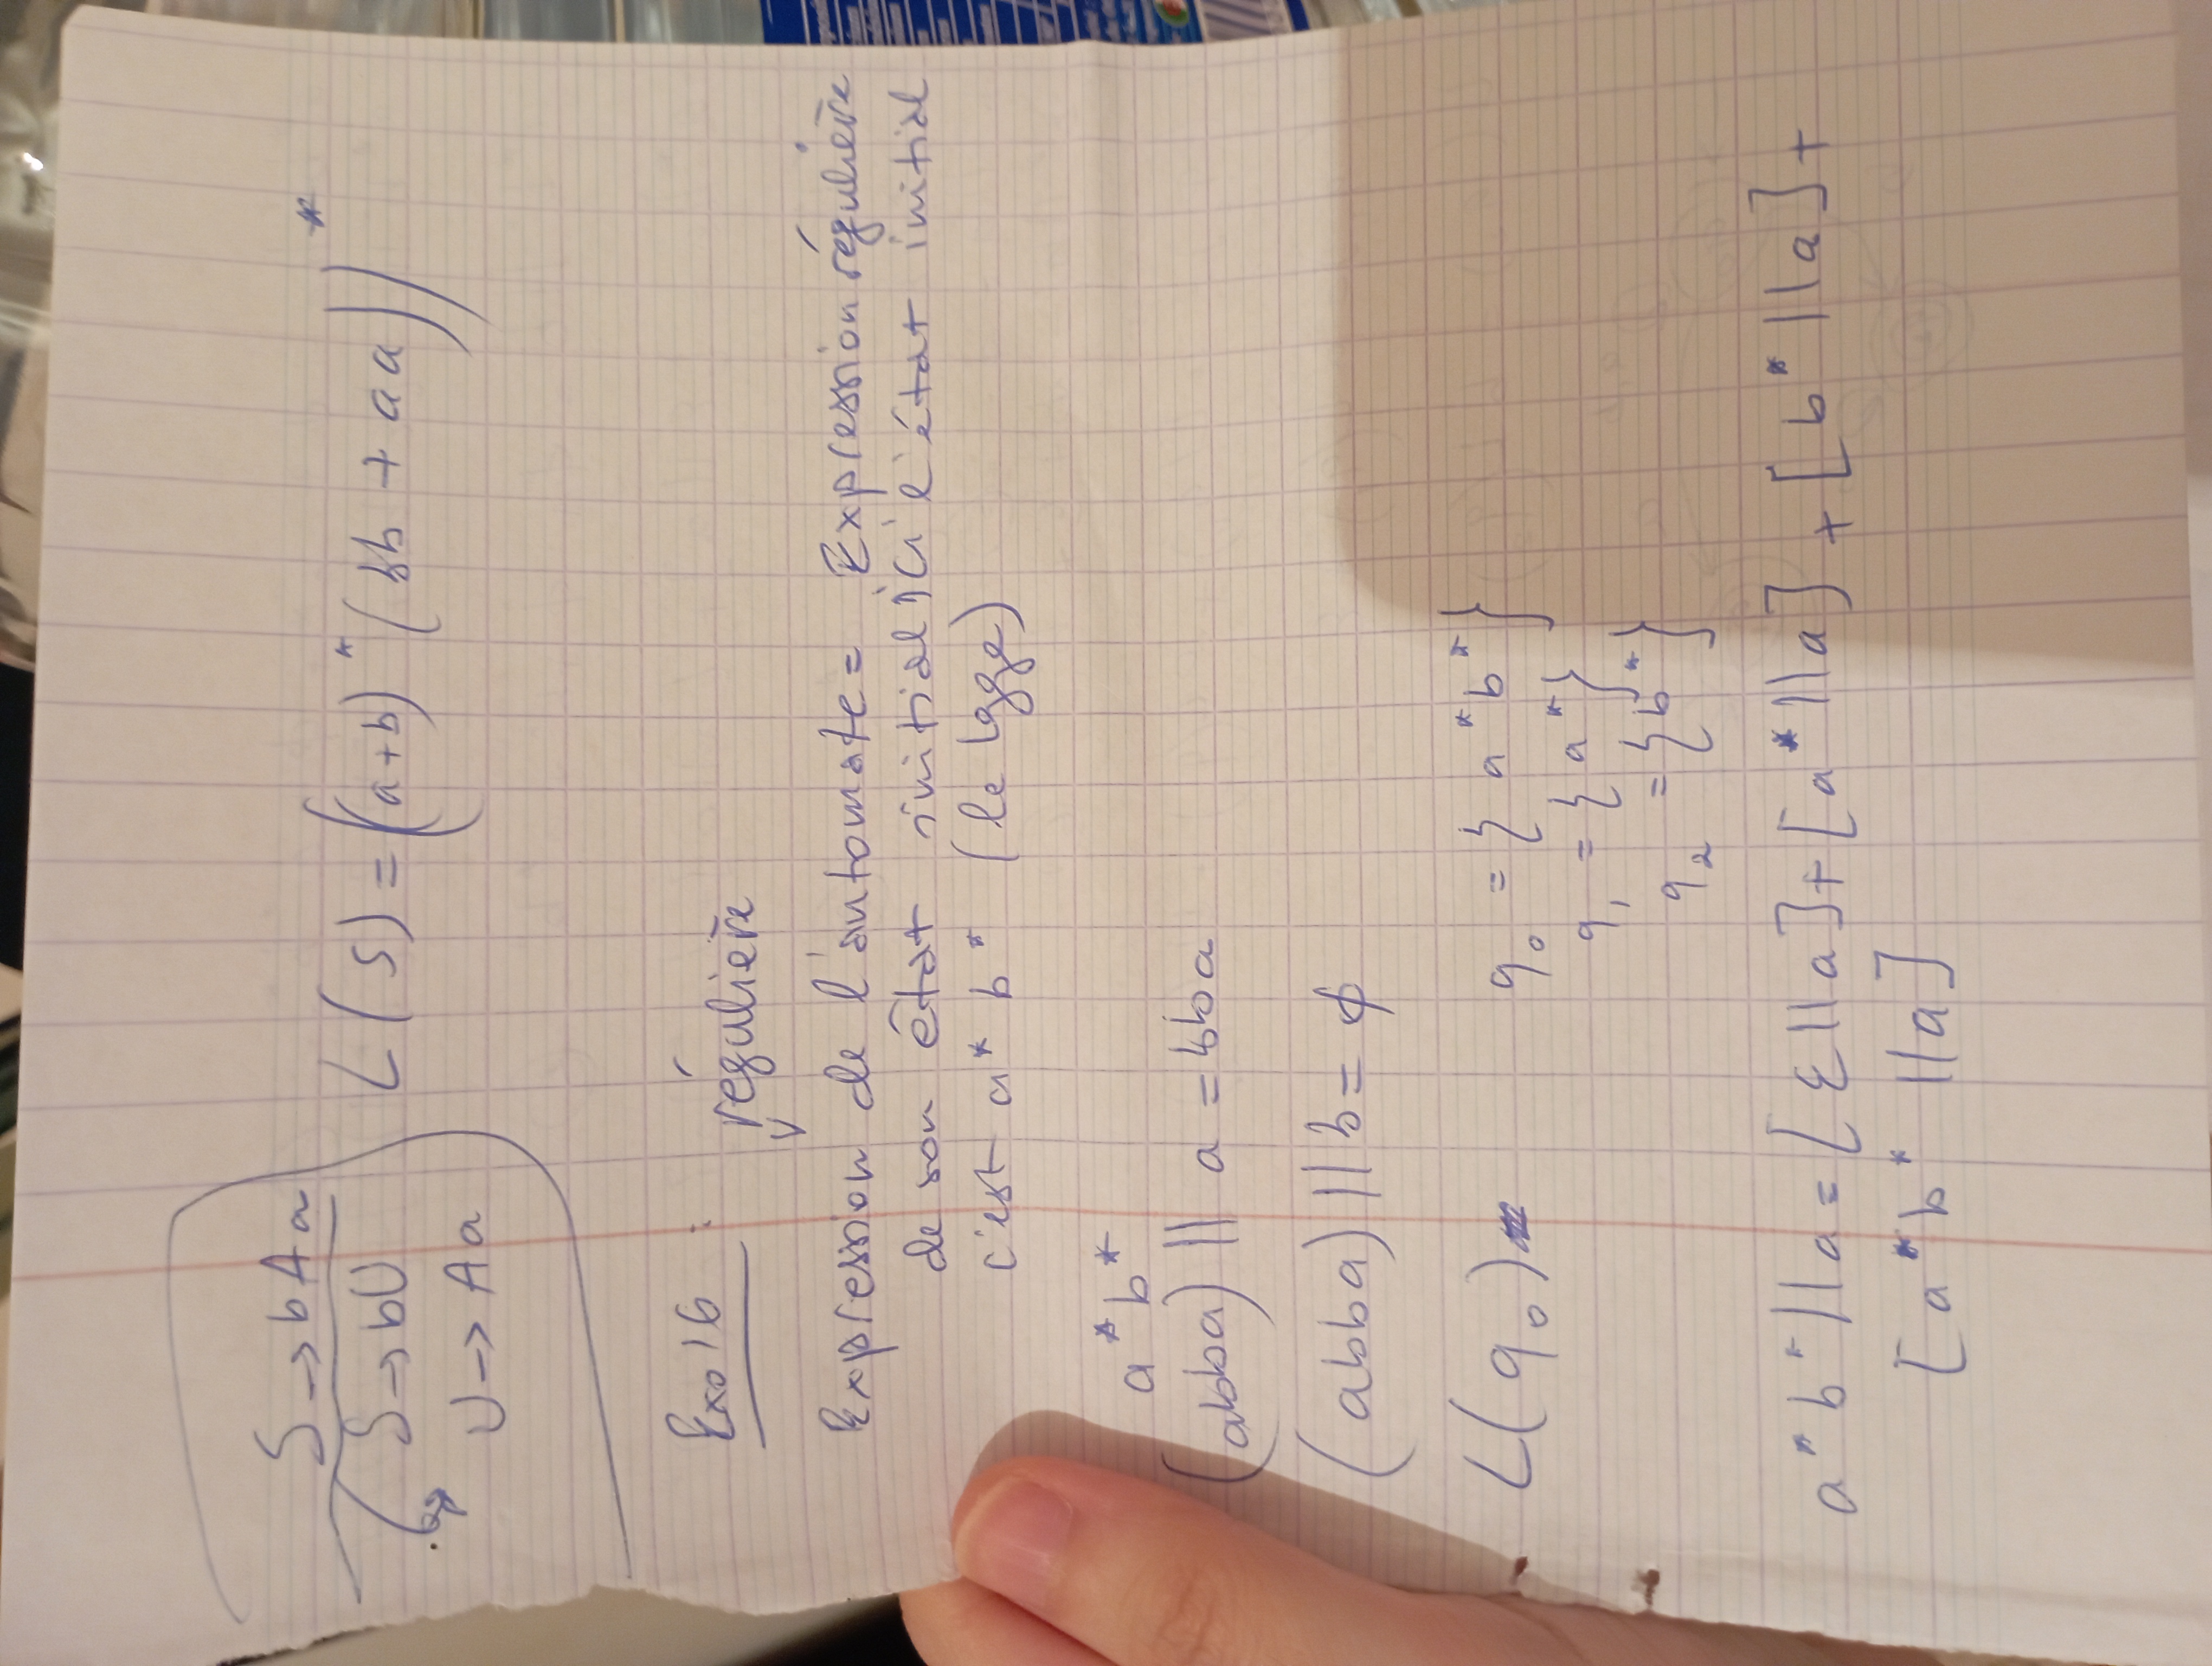 S → bAa
S → bU
U → Aa
L(S) = ((a+b)* (bb + aa))*
Exo 16 :
régulière
Expression de l'automate = Expression régulière
de son état initial ici l'état initial
c'est a* b* (le lgge)
a* b*
(abba) || a = bba
(abba) || b = ϕ
L(q₀) q₀ = { a* b* }
q₁ = { a* }
q₂ = { b* }
a* b* || a = [ε || a] + [a* || a] + [b* || a] +
[a* b* || a]